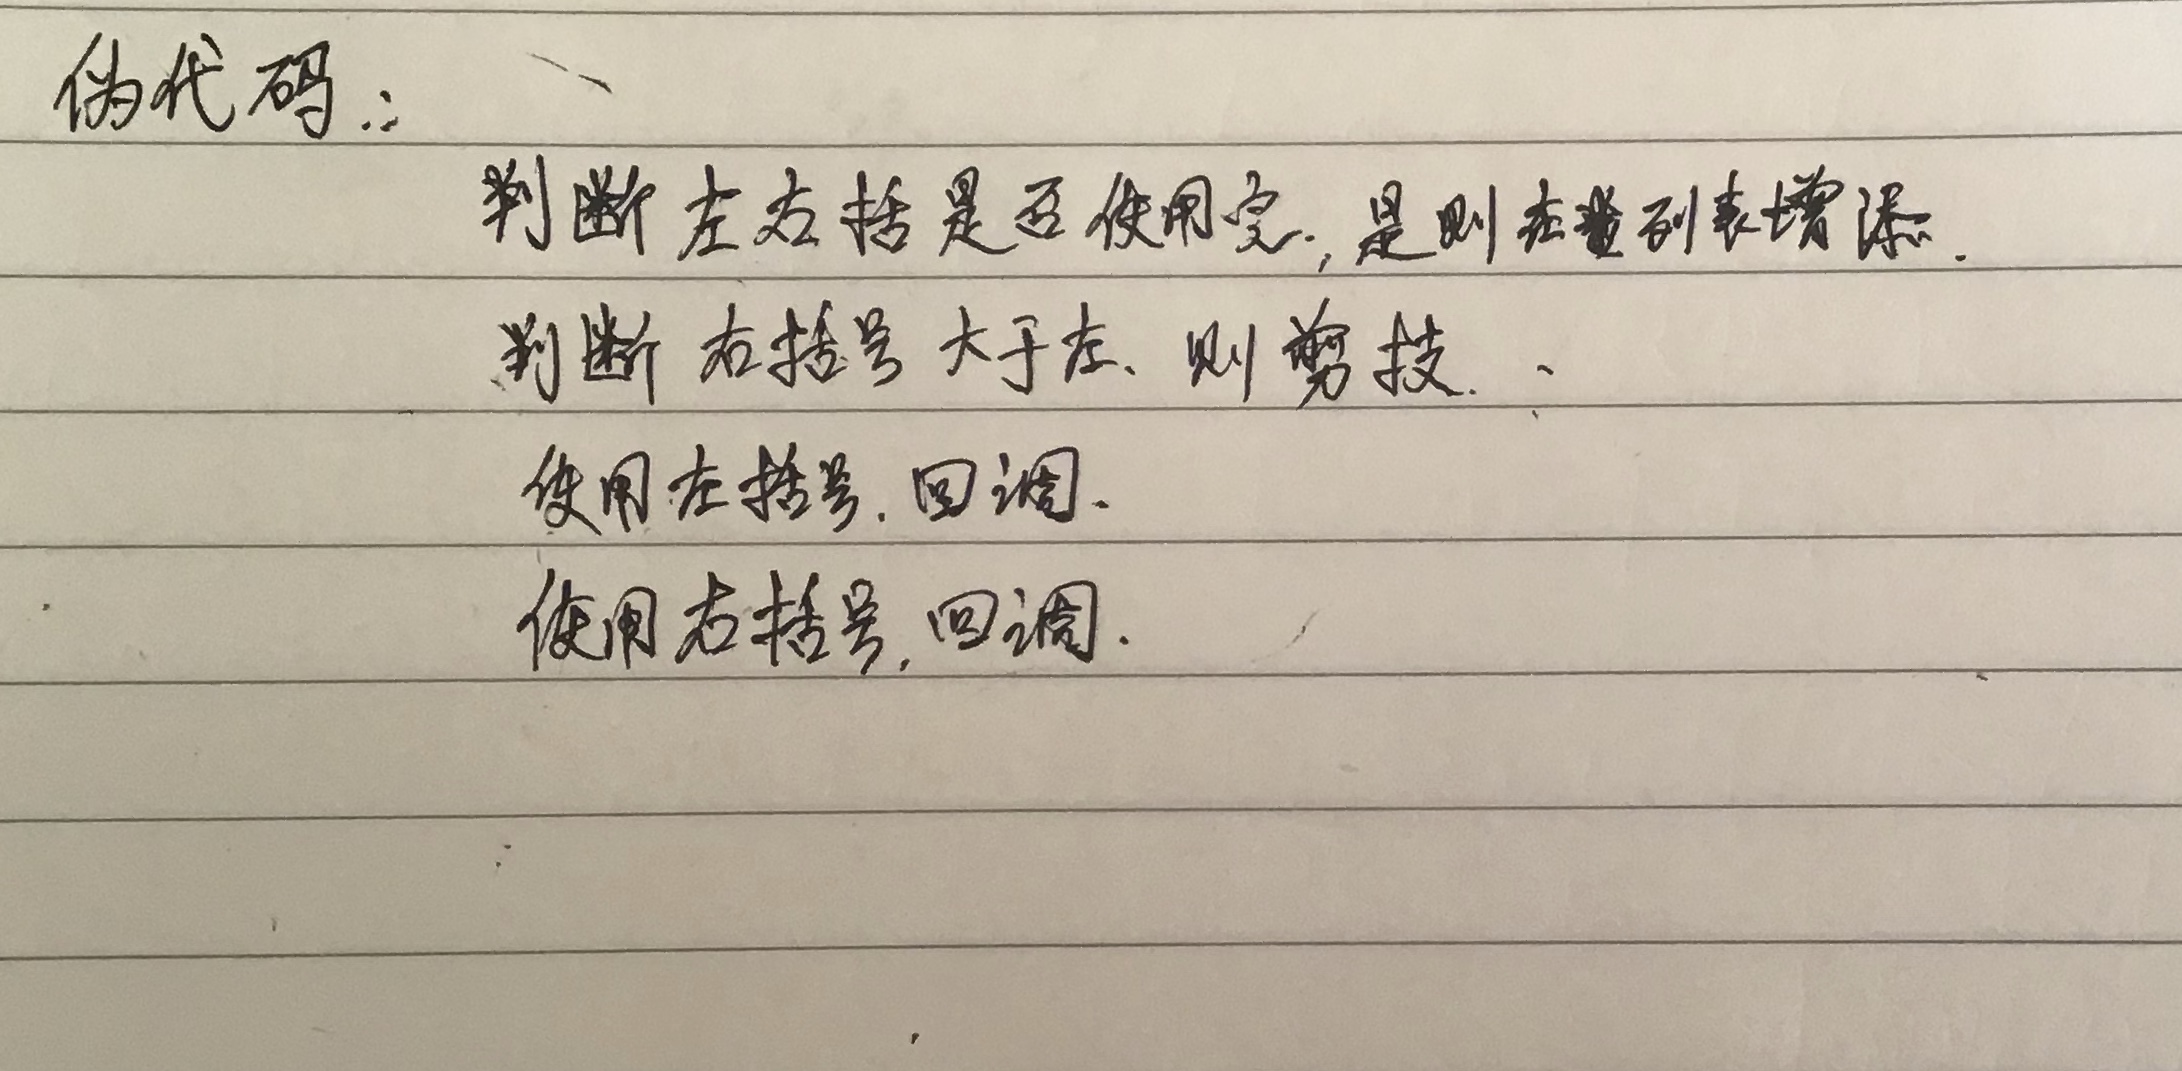 伪代码:
判断左右括是否使用完,是则在列表增添.
判断右括号大于左、则剪技.
使用左括号.回调.
使用右括号,回调.